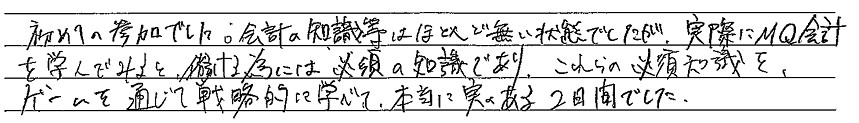 初めての参加でした。会計の知識等はほとんど無い状態でしたが、実際にMQ会計
を学んでみると、儲ける為には必須の知識であり、これらの必須知識を、
ゲームを通じて戦略的に学べて、本当に実のある2日間でした。